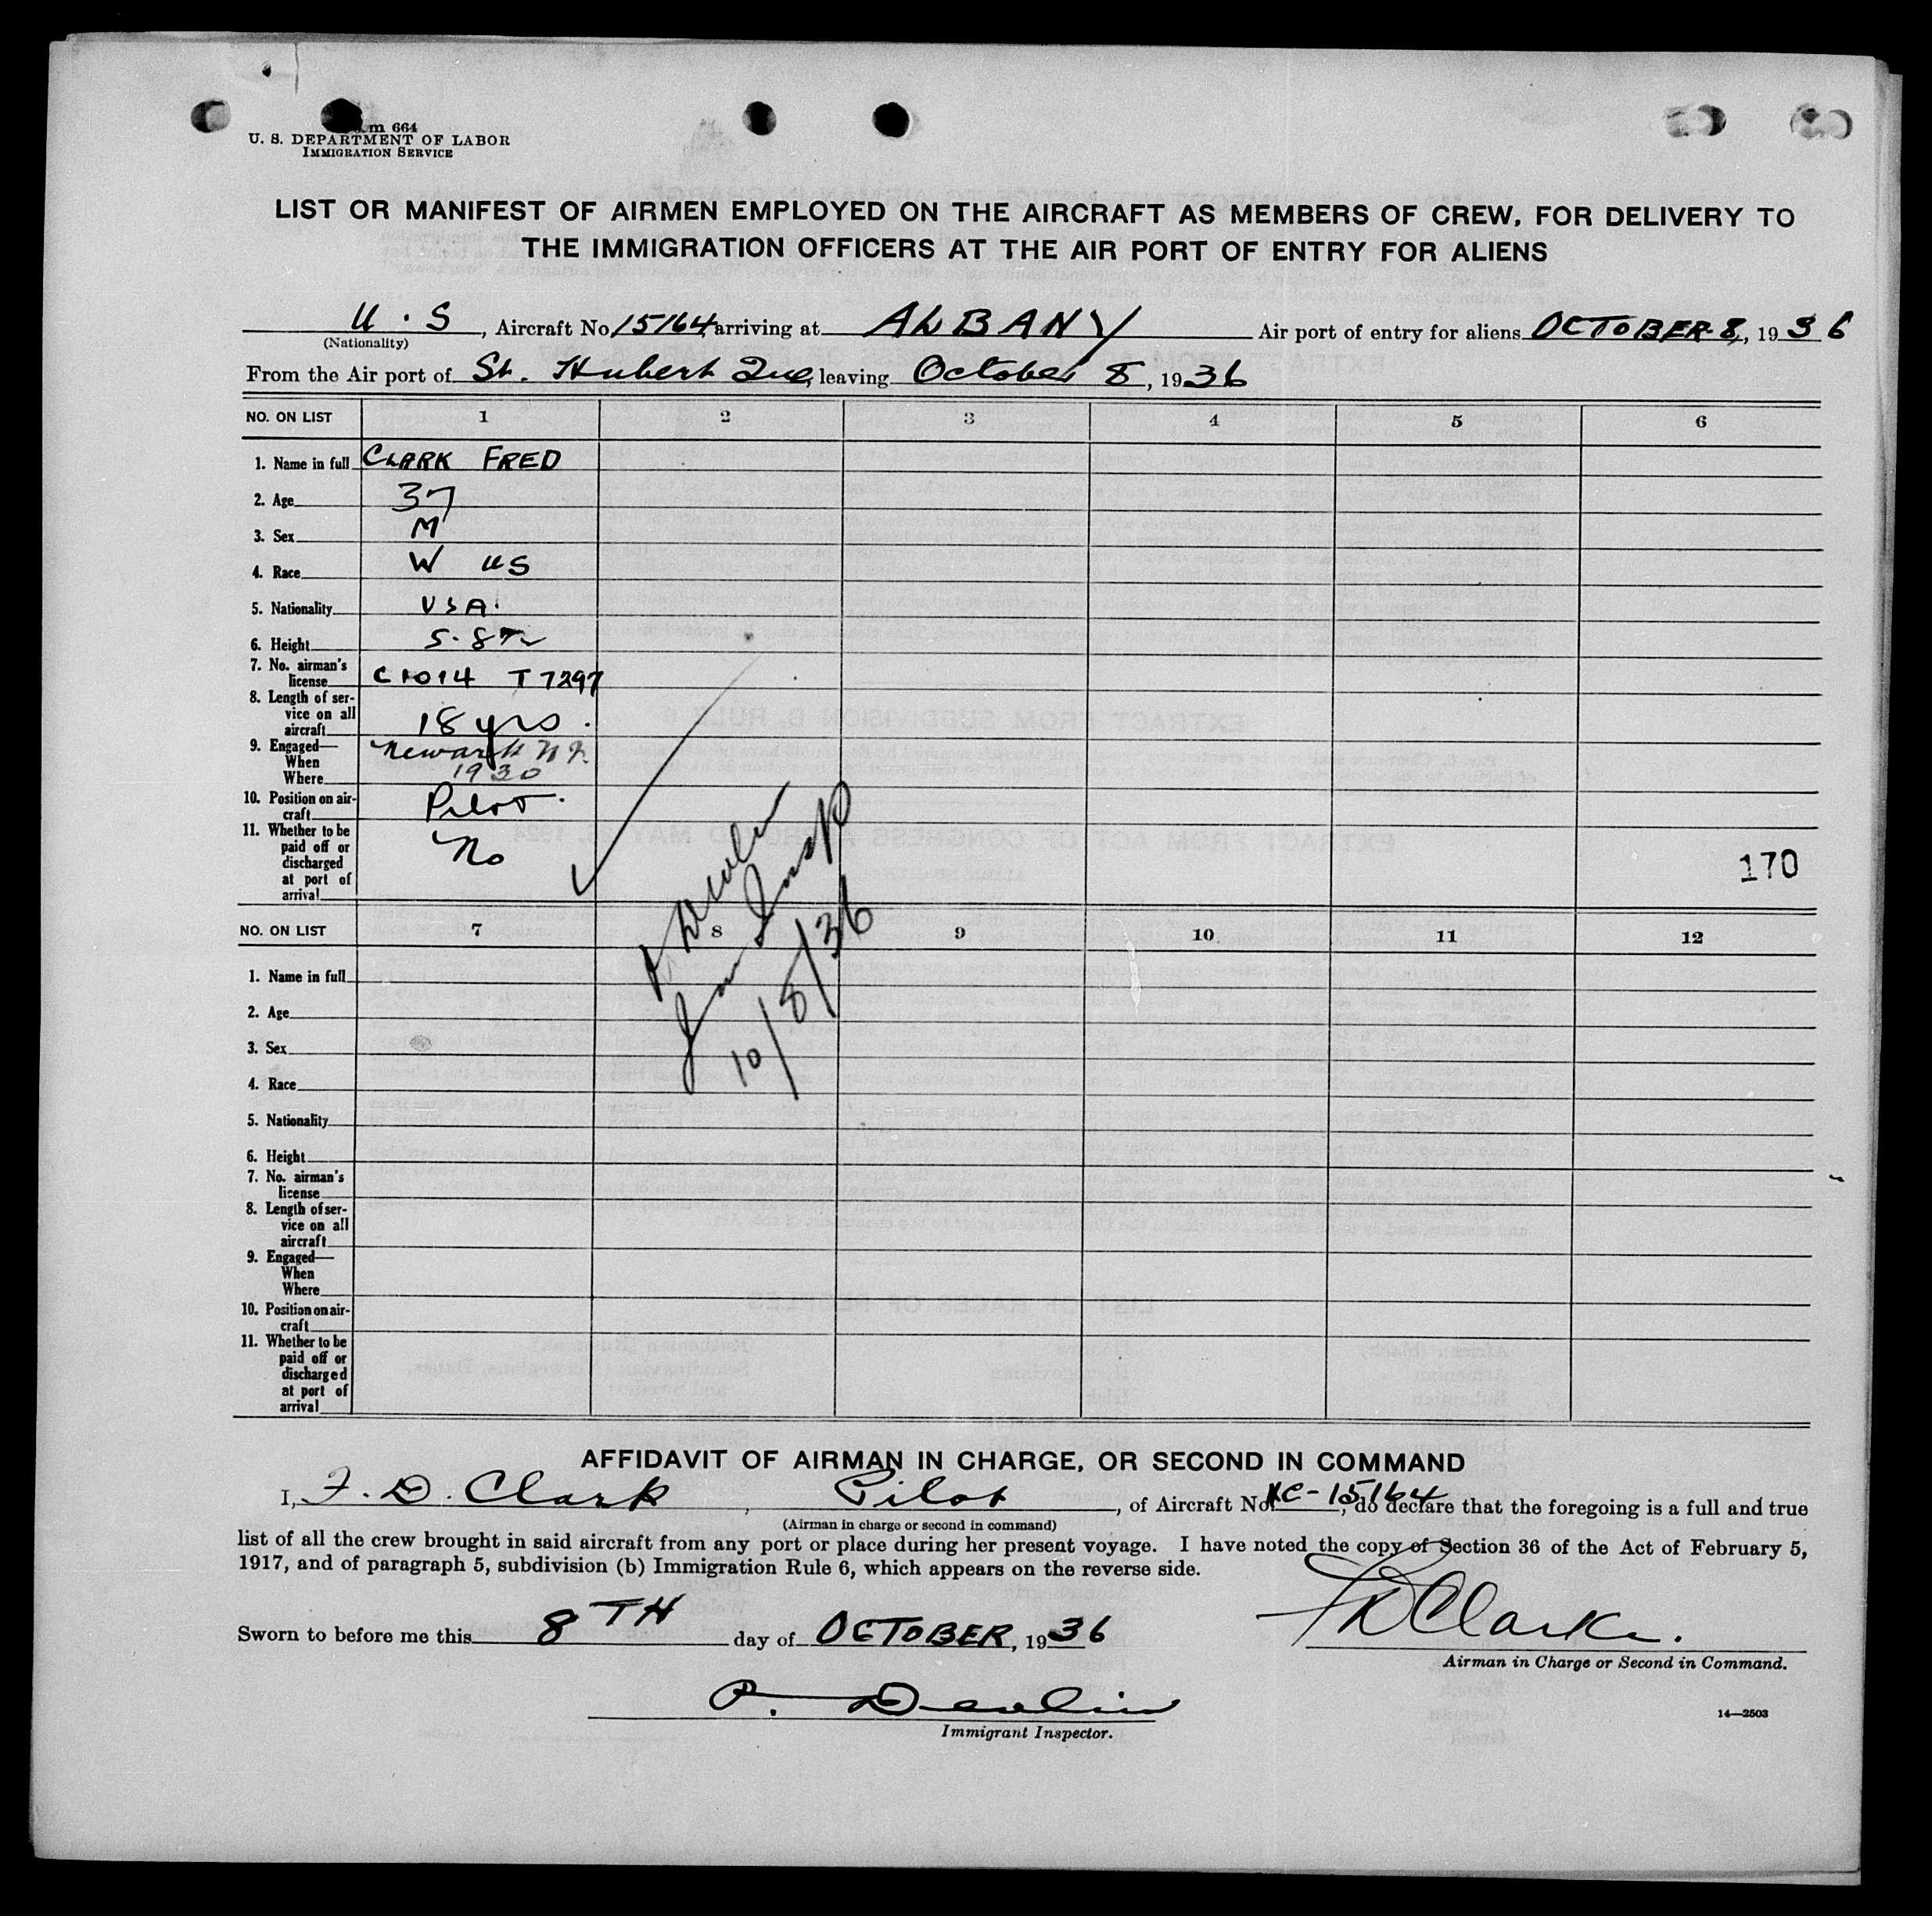 m 664
U. S. DEPARTMENT OF LABOR
IMMIGRATION SERVICE
LIST OR MANIFEST OF AIRMEN EMPLOYED ON THE AIRCRAFT AS MEMBERS OF CREW, FOR DELIVERY TO
THE IMMIGRATION OFFICERS AT THE AIR PORT OF ENTRY FOR ALIENS
U. S, Aircraft No 15164, arriving at ALBANY Air port of entry for aliens OCTOBER 8, 1936
(Nationality)
From the Air port of St. Hubert Que, leaving October 8, 1936
NO. ON LIST 1 2 3 4 5 6
1. Name in full CLARK FRED
2. Age 37
3. Sex M
4. Race W US
5. Nationality USA.
6. Height 5-8½
7. No. airman's
license C1014 T7297
8. Length of ser-
vice on all
aircraft 18 yrs.
9. Engaged— Newark N J.
When 1930
Where
10. Position on air-
craft Pilot.
11. Whether to be
paid off or No
discharged
at port of
arrival
170
P. Devlin
Imm Insp
10/8/36
NO. ON LIST 7 8 9 10 11 12
1. Name in full
2. Age
3. Sex
4. Race
5. Nationality
6. Height
7. No. airman's
license
8. Length of ser-
vice on all
aircraft
9. Engaged—
When
Where
10. Position on air-
craft
11. Whether to be
paid off or
discharged
at port of
arrival
AFFIDAVIT OF AIRMAN IN CHARGE, OR SECOND IN COMMAND
I, F. D. Clark, Pilot, of Aircraft No. NC-15164, do declare that the foregoing is a full and true
(Airman in charge or second in command)
list of all the crew brought in said aircraft from any port or place during her present voyage. I have noted the copy of Section 36 of the Act of February 5,
1917, and of paragraph 5, subdivision (b) Immigration Rule 6, which appears on the reverse side.
FDClark.
Sworn to before me this 8TH day of OCTOBER, 1936
Airman in Charge or Second in Command.
P. Devlin
Immigrant Inspector.
14—2503